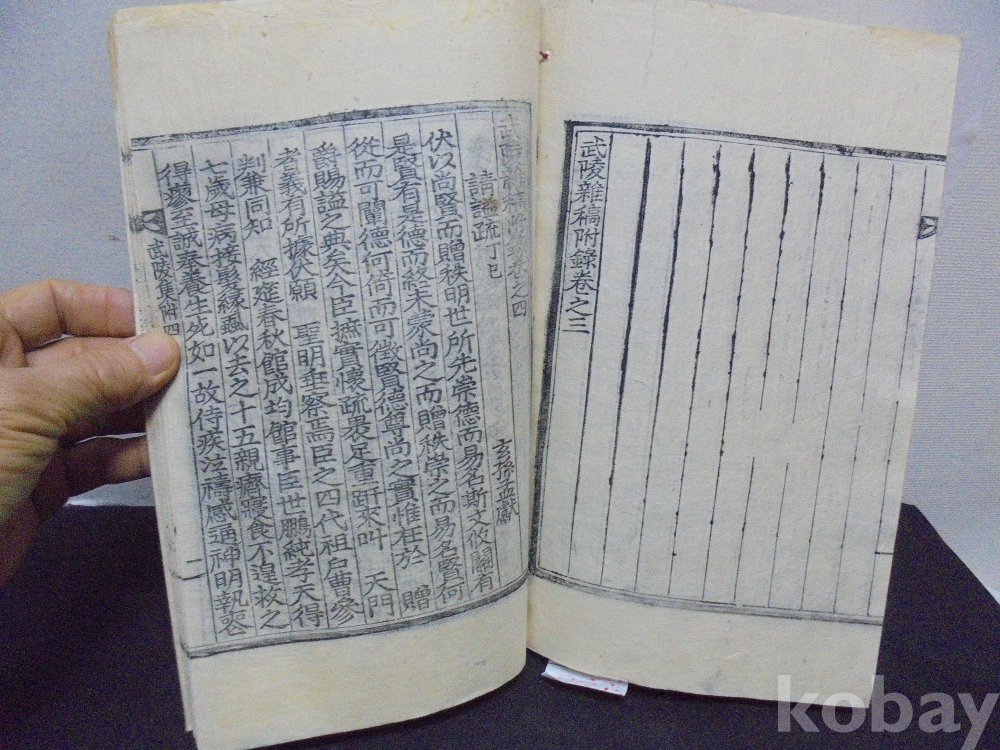 武陵雜稿附錄卷之三
武陵雜稿附錄卷之四
請謚疏 丁巳 玄孫孟獻
伏以尚賢而贈秩明世所先崇德而易名斯文攸關有
是賢有是德而終未蒙尚之而贈秩崇之而易名賢何
從而可闡德何倚而可徵賢德尊尚之實惟在於 贈
爵賜謚之典矣今臣摭實懷疏裹足重趼來叫 天門
者義有所據伏願 聖明垂察焉臣之四代祖戶曹參
判兼同知 經筵春秋館成均館事臣世鵬純孝天得
七歲母病接髮緣蝨以去之十五親癠寢食不遑救之
得瘳至誠奉養生死如一故侍疾泣禱感通神明執喪
武陵集附四 二
kobay